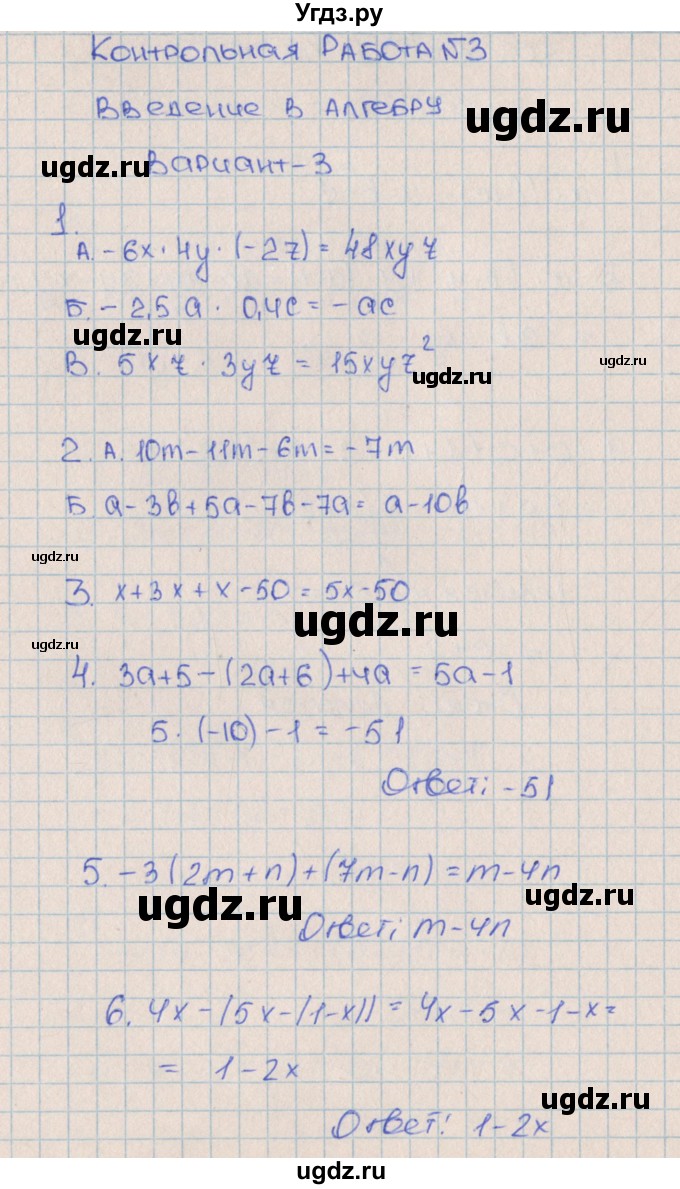 Угдз.ру
Контрольная РАБОТА №3
Введение в Алгебру
ugdz.ru
ugdz.ru
Вариант-3
1.
А. -6x·4y·(-2z)=48xyz
Б. -2,5a·0,4c=-ac
ugdz.ru
В. 5xz·3yz=15xyz²
ugdz.ru
ugdz.ru
2. А. 10m-11m-6m=-7m
Б. a-3b+5a-7b-7a= a-10b
ugdz.ru
3. x+3x+x-50=5x-50
ugdz.ru
ugdz.ru
4. 3a+5-(2a+6)+4a=5a-1
5·(-10)-1=-51
Ответ: -51
5. -3(2m+n)+(7m-n)=m-4n
ugdz.ru
ugdz.ru
Ответ: m-4n
6. 4x-(5x-(1-x))=4x-5x-1-x=
= 1-2x
ugdz.ru
Ответ: 1-2x
ugdz.ru